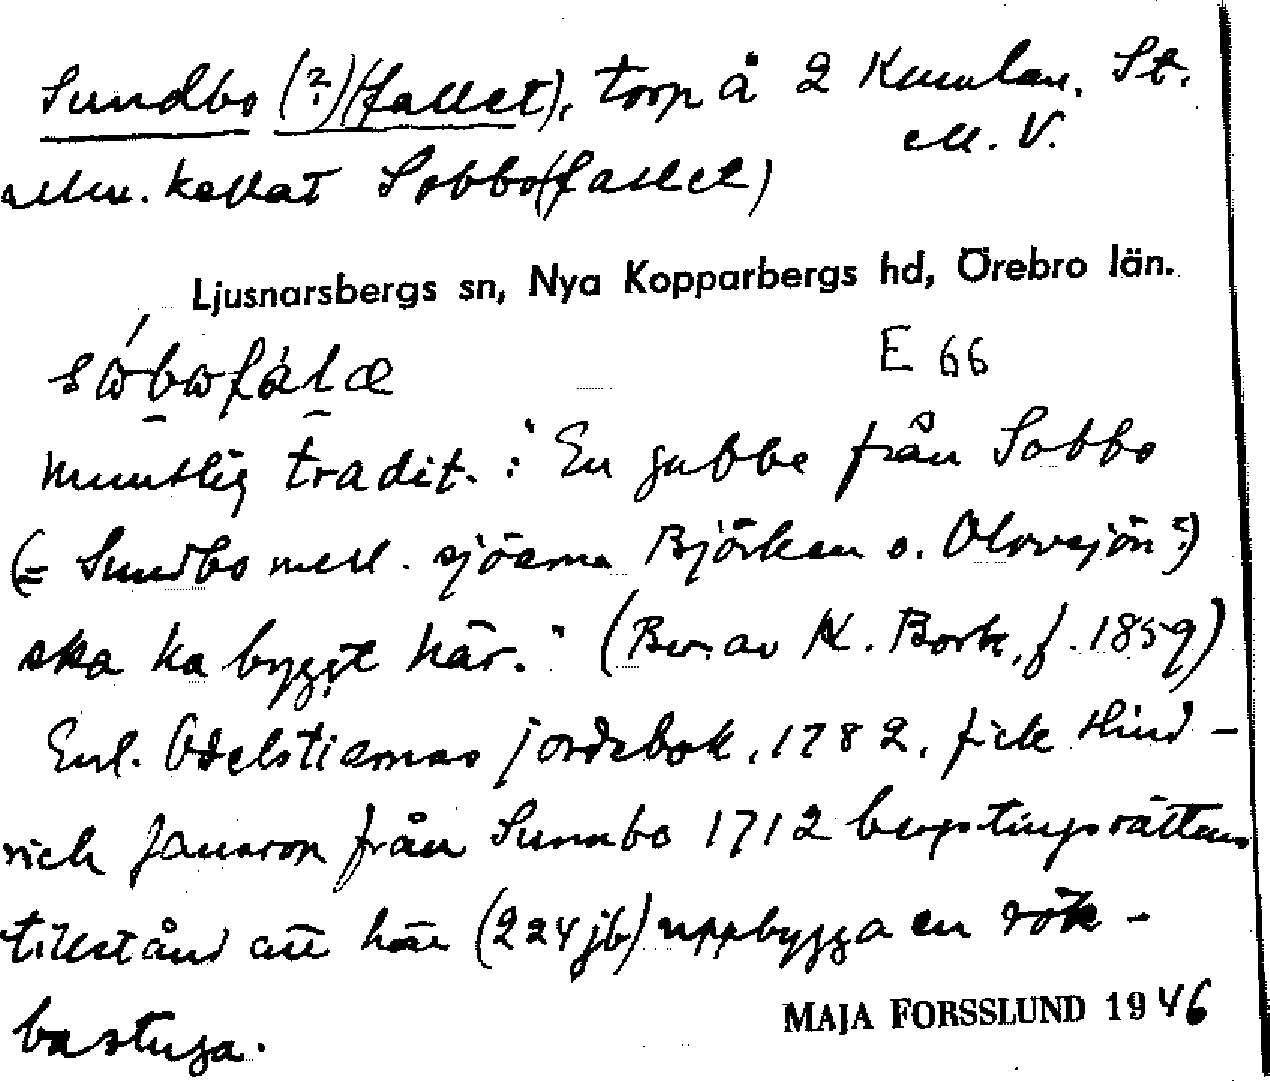 Sundbo (?)(fallet), torp å 2 Kumlan. St.
M. V.
allm. kallat Sobbo(fallet)
Ljusnarsbergs sn, Nya Kopparbergs hd, Örebro län.
E 66
Muntlig tradit. : "En gubbe från Sobbo
(= Sundbo mell. sjöarna Björken o. Olovsjön?)
ska ha byggt här." (Ber. av K. Bork, f. 1859)
Enl. Odelstiernas jordebok, 1782, fick Hind-
rich Jansson från Sunnbo 1712 bergstingsrättens
tillstånd att här (224 jb) uppbygga en rök-
bastuga.
MAJA FORSSLUND 1946